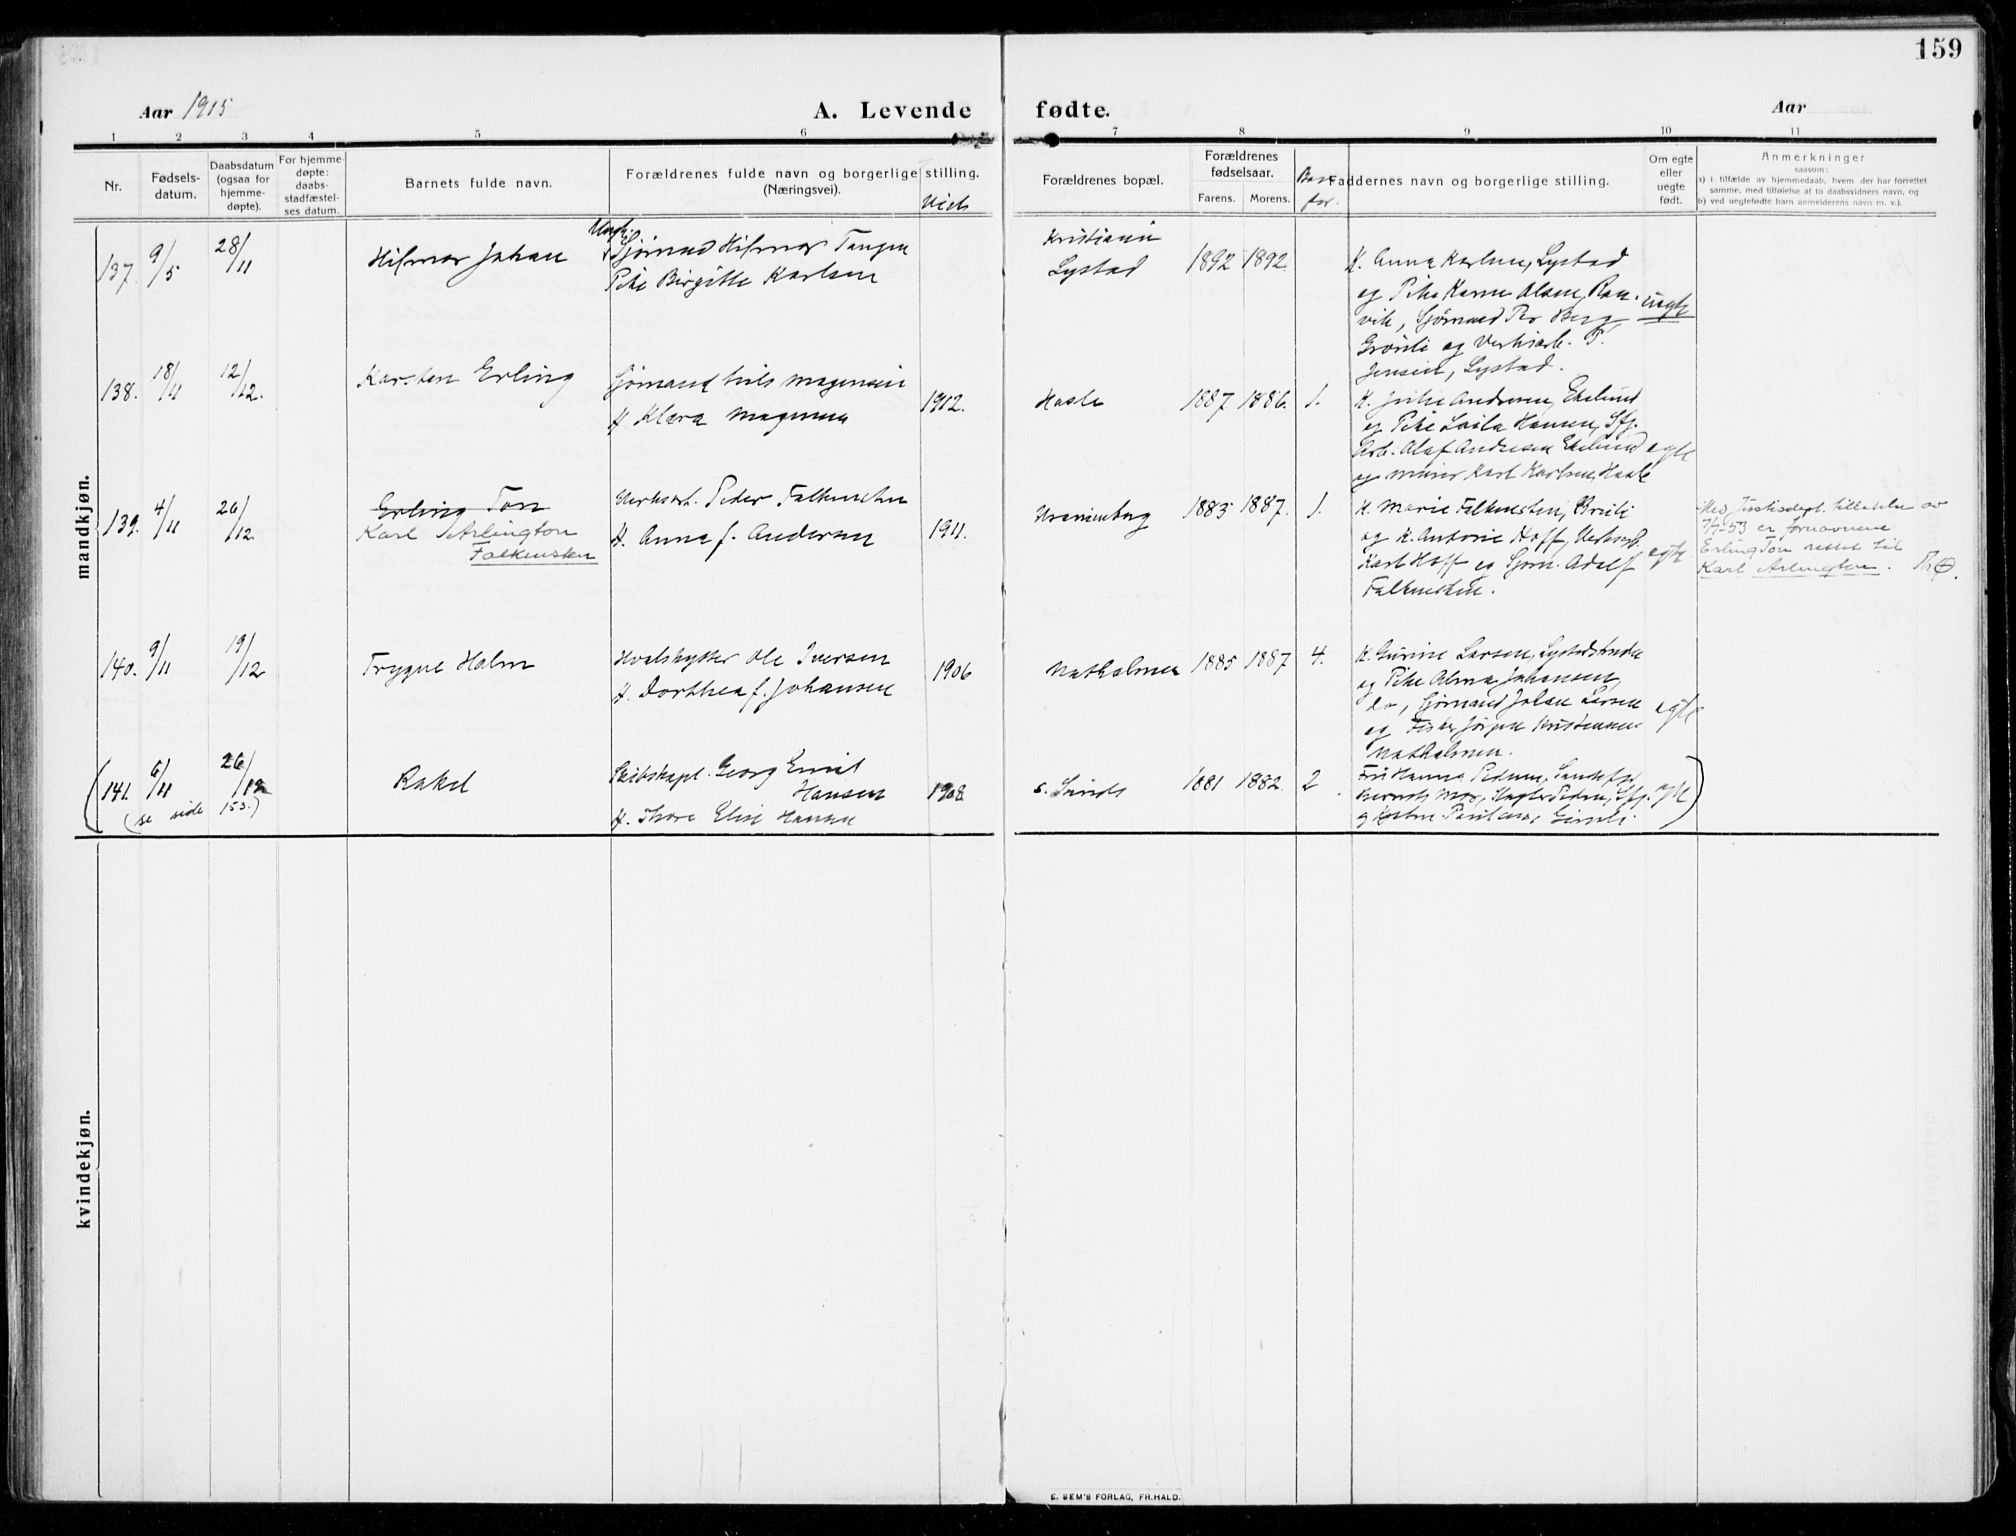 159
Aar 1915
A. Levende
fødte.
Aar
1 2 3 4 5 6 7 8 9 10 11
Nr.
Fødsels-
datum.
Daabsdatum
(ogsaa for
hjemme-
døpte).
For hjemme-
døpte:
daabs-
stadfæstel-
ses datum.
Barnets fulde navn.
Forældrenes fulde navn og borgerlige stilling.
(Næringsvei).
Viet
Forældrenes bopæl.
Forældrenes
fødselsaar.
Farens. Morens.
Faddernes navn og borgerlige stilling.
Om egte
eller
uegte
født.
Anmerkninger
saasom:
a) i tilfælde av hjemmedaab, hvem der har forrettet
samme, med tilføielse af to daabsvidners navn, og
b) ved uegtefødte barn anmelderens navn m. v.).
mandkjøn.
137. 9/5 28/11 Hilmar Johan
Ungk.
Sjømand Hilmar Tangen
Pike Birgitte Karlsen
Kristiania
Lystad
1892 1892
K. Anna Karlsen, Lystad
og Pike Karen Olsen, Ran-
vik, Sjømand Per Berg,
Grønli og Verksarb. P.
Jensen, Lystad.
uegte
138. 18/11 12/12. Karsten Erling
Sjømand Nils Magensen
H. Klara Magensen
1912.
Hasle
1887 1886. 1.
K. Andersen, Ekelund
og Pike Laila Hansen, Sfj.
Arb. Olaf Andersen Ekelund
og murer Karl Karlsen, Hasle
egte
139. 4/11 26/12. Erling Ton
Karl Arlington
Falkensten
Verksarb. Peder Falkensten
H. Anna f. Andersen
1911.
Kranienborg
1883 1887. 1.
K. Marie Falkensten, Breili
og K. Antonie Hoff, Verksarb.
Karl Hoff og Sjøm. Adolf
Falkensten.
egte
Med Justisdept. tillatelse av
7/7-53 er fornavnene
Erling Ton rettet til
Karl Arlington. Th.Ø.
140. 9/11 19/12 Trygve Holm
Hvalskytter Ole Iversen
H. Dorthea f. Johansen
1906
Natholmen
1885 1887 4.
K. Gurine Larsen, Lystadstranda
og Pike Alma Johansen,
do, Sjømand Johan Larsen
og Fisker Jørgen Kristiansen
Natholmen.
egte
(141. 6/11 26/12 Rakel
(se side 153.)
Skibskapt. Georg Emil
Hansen
H. Thora Elise Hansen
1908
1881 1882. 2
Fru Hanna Pedersen, Sandefj.
egte)
kvindekjøn.
E. SEM'S FORLAG, FR.HALD.